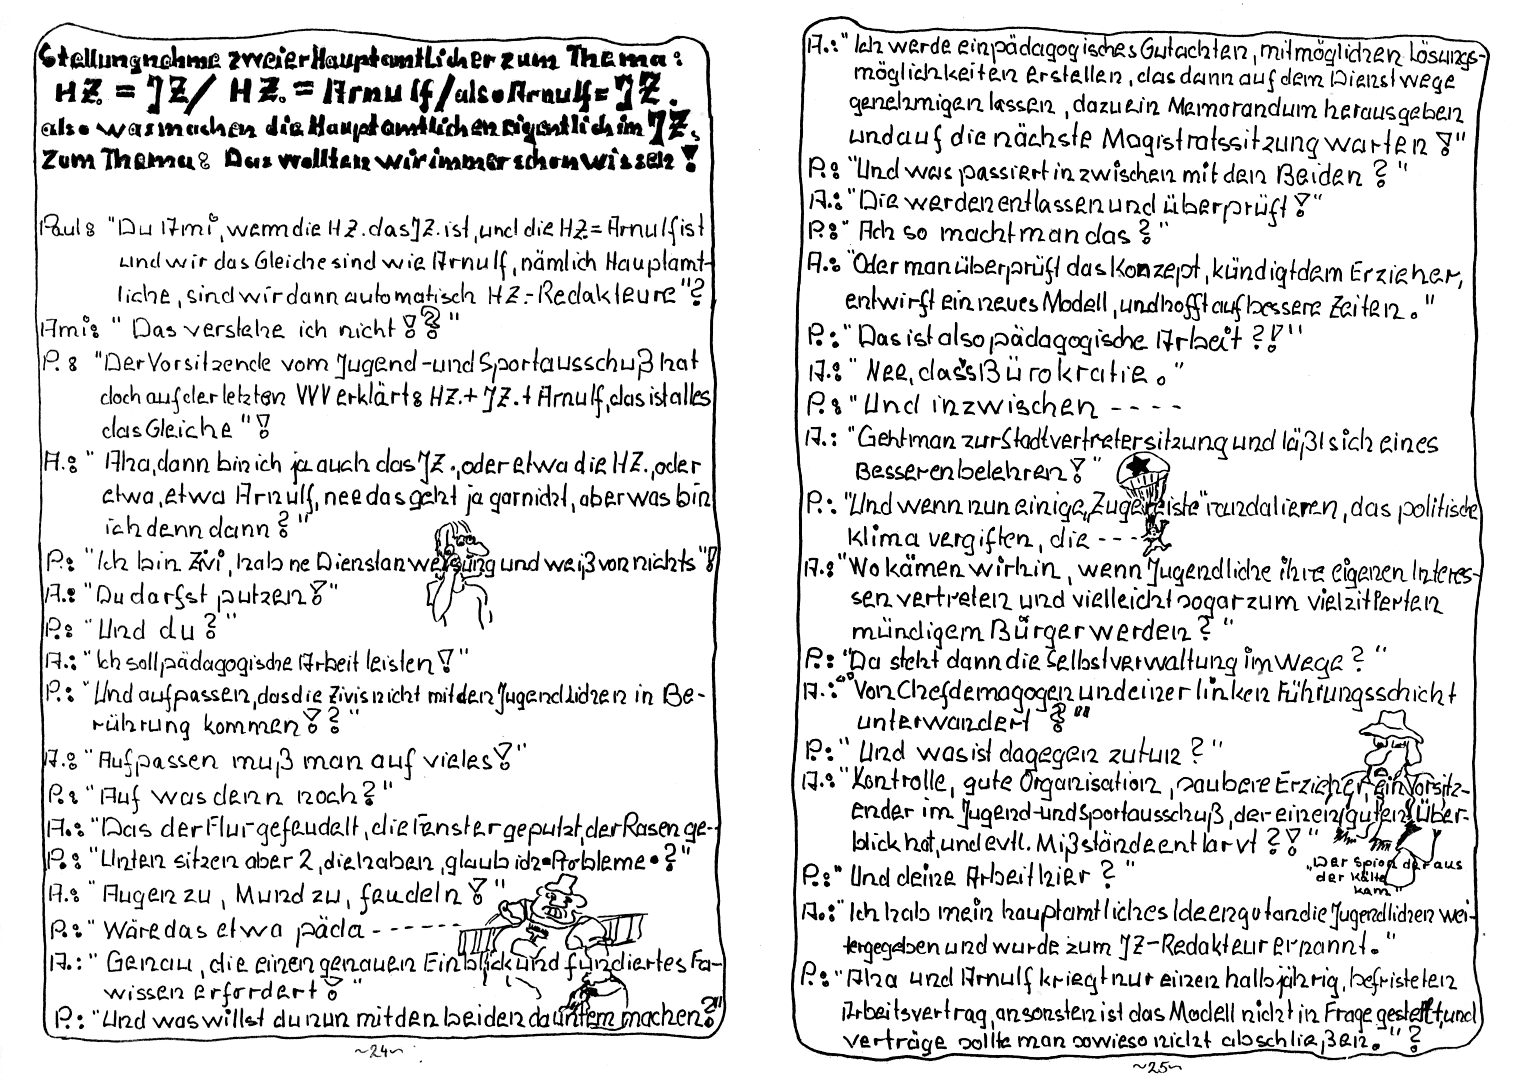 Stellungnahme zweier Hauptamtlicher zum Thema:
HZ. = JZ/ HZ. = Arnulf/also Arnulf = JZ.
also was machen die Hauptamtlichen eigentlich im JZ.
Zum Thema: Das wollten wir immer schon wissen!
Paul: "Du Ami, wenn die HZ. das JZ. ist, und die HZ = Arnulf ist
und wir das Gleiche sind wie Arnulf, nämlich Hauptamt-
liche, sind wir dann automatisch HZ.-Redakteure"?
Ami: "Das verstehe ich nicht!?"
P.: "Der Vorsitzende vom Jugend-und Sportausschuß hat
doch auf der letzten VV erklärt: HZ.+ JZ.+ Arnulf, das ist alles
das Gleiche"!
A.: "Aha, dann bin ich ja auch das JZ., oder etwa die HZ., oder
etwa, etwa Arnulf, nee das geht ja garnicht, aber was bin
ich denn dann?"
P.: "Ich bin Zivi, hab ne Dienstanweisung und weiß von nichts"!
A.: "Du darfst putzen!"
P.: "Und du?"
A.: "Ich soll pädagogische Arbeit leisten!"
P.: "Und aufpassen, das die Zivis nicht mit den Jugendlichen in Be-
rührung kommen!?"
A.: "Aufpassen muß man auf vieles!"
P.: "Auf was denn noch?"
A.: "Das der Flur gefeudelt, die Fenster geputzt, der Rasen ge-
P.: "Unten sitzen aber 2, die haben, glaub ich•Probleme•?"
A.: "Augen zu, Mund zu, feudeln!"
P.: "Wäre das etwa päda------
A.: "Genau, die einen genauen Einblick und fundiertes Fa-
wissen erfordert!"
P.: "Und was willst du nun mit den beiden da untern machen?"
~24~
A.: "Ich werde ein pädagogisches Gutachten, mit möglichen Lösungs-
möglichkeiten erstellen, das dann auf dem Dienstwege
genehmigen lassen, dazu ein Memorandum herausgeben
und auf die nächste Magistratssitzung warten!"
P.: "Und was passiert inzwischen mit den Beiden?"
A.: "Die werden entlassen und überprüft!"
P.: "Ach so macht man das?"
A.: "Oder man überprüft das Konzept, kündigt dem Erzieher,
entwirft ein neues Modell, und hofft auf bessere Zeiten."
P.: "Das ist also pädagogische Arbeit?!"
A.: "Nee, dass Bürokratie."
P.: "Und inzwischen ----
A.: "Geht man zur Stadtvertretersitzung und läßt sich eines
Besseren belehren!"
P.: "Und wenn nun einige "Zugereiste" randalieren, das politische
Klima vergiften, die ---
A.: "Wo kämen wir hin, wenn Jugendliche ihre eigenen Interes-
sen vertreten und vielleicht sogar zum vielzitierten
mündigem Bürger werden?"
P.: "Da steht dann die Selbstverwaltung im Wege?"
A.: "Von Chefdemagogen und einer linken Führungsschicht
unterwandert?"
P.: "Und was ist dagegen zu tun?"
A.: "Kontrolle, gute Organisation, saubere Erzieher, ein Vorsitz-
ender im Jugend-und Sportausschuß, der einen guten Über-
blick hat, und evtl. Mißstände entlarvt?!"
„Der Spion der aus
der Kälte
kam"
P.: "Und deine Arbeit hier?"
A.: "Ich hab mein hauptamtliches Ideengut an die Jugendlichen wei-
tergegeben und wurde zum JZ-Redakteur ernannt."
P.: "Aha und Arnulf kriegt nur einen halbjährig, befristeten
Arbeitsvertrag, ansonsten ist das Modell nicht in Frage gestellt, und
verträge sollte man sowieso nicht abschließen."?
~25~